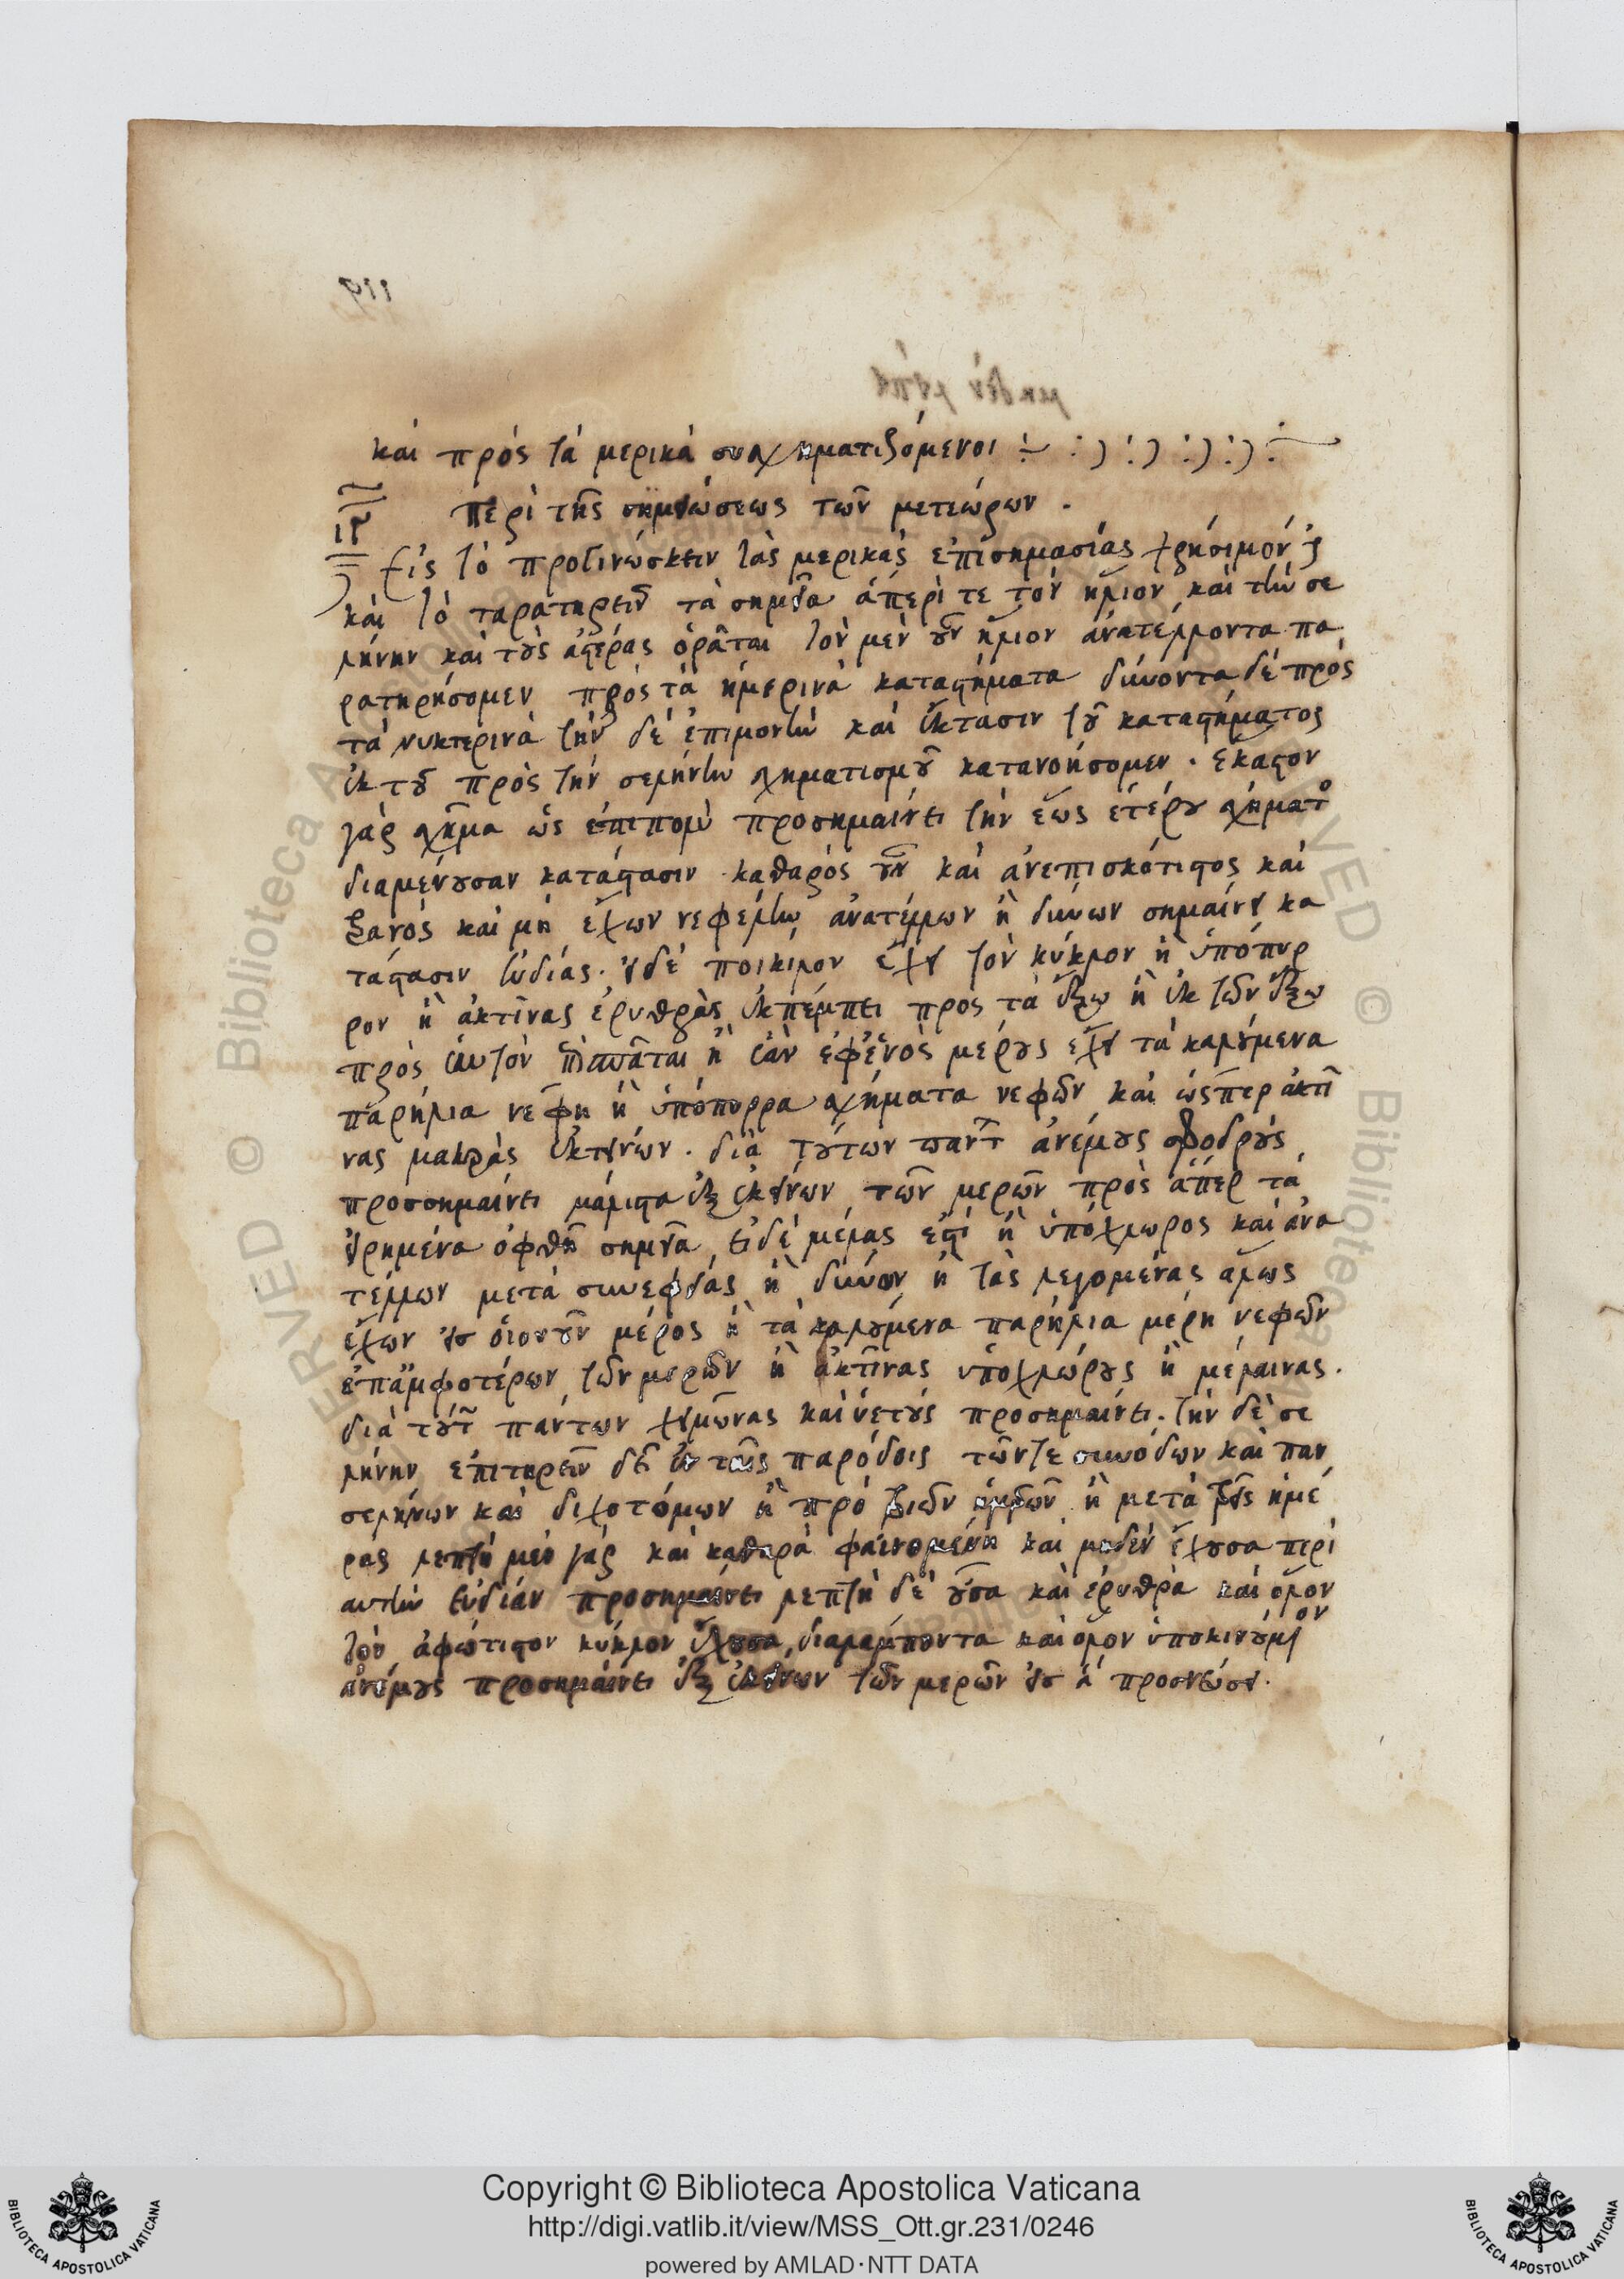 και πρός τα μερικά συσχηματιζόμενοι
ιγ Περι της σημειώσεως των μετεώρων.
Εις το προγινώσκειν τας μερικας επισημασίας χρήσιμον ἐστι
και το παρατηρειν τα σημεια απερί τε τον ήλιον και την σε
λήνην και τους αστέρας οραται τον μεν ουν ήλιον ανατέλλοντα πα
ρατηρήσομεν προς τα ημερινα καταστήματα δύνοντα δε προς
τα νυκτερινα την δε επιμονην και έκτασιν του καταστήματος
εκ του προς την σελήνην σχηματισμου κατανοήσομεν. εκαστον
γαρ σχημα ως επιπολυ προσημαίνει την έως ετέρου σχήματος
διαμένουσαν κατάστασιν. καθαρος ουν και ανεπισκότιστος και
ξανος και μη έχων νεφέλην ανατέλλων η δύνων σημαίνει κα
τάστασιν ευδίας. ει δε ποικίλον έχει τον κύκλον η υπόπυρ
ρον η ακτινας ερυθρας εκπέμπει προς τα έξω η εκ των έξω
προς εαυτον η εαν εφ ενος μέρους έχει τα καλούμενα
παρήλια νεφη η υπόπυρρα σχήματα νεφων και ωσπερ ακτι
νας μακρας εκτείνων. δια τούτων παντ ανέμους σφοδρους
προσσημαίνει μάλιστα εξ εκείνων των μερων προς άπερ τα
ειρημένα οφθη σημεια ει δε μέλας εστι η υπόχλωρος και ανα
τέλλων μετα συνεφείας η δύνων η τας λεγομένας αλως
έχων εις οιονουν μέρος η τα καλούμενα παρήλια μέρη νεφων
επαμφοτέρων των μερων η ακτινας υποχλώρους η μέλαινας.
δια τούτ πάντων χειμωνας και υετους προσημαίνει. την δε σε
λήνην επιτηρειν δει εν ταις παρόδοις των τε συνόδων και παν
σελήνων και διχοτόμων η προ τριων ημερων η μετα τρεις ημέ
ρας λεπτη μεν γαρ και καθαρα φαινομένη και μηδεν έχουσα περι
αυτην ευδίαν προσημαίνει λεπτη δε ουσα και ερυθρα και όλον
τον αφώτιστον κύκλον έχουσα διαλάμποντα και όλον υποκινούμενον
ανέμους προσημαίνει εξ εκείνων των μερων εις α προσνεύσει.
Copyright © Biblioteca Apostolica Vaticana
http://digi.vatlib.it/view/MSS_Ott.gr.231/0246
powered by AMLAD·NTT DATA
BIBLIOTECA APOSTOLICA VATICANA
BIBLIOTECA APOSTOLICA VATICANA